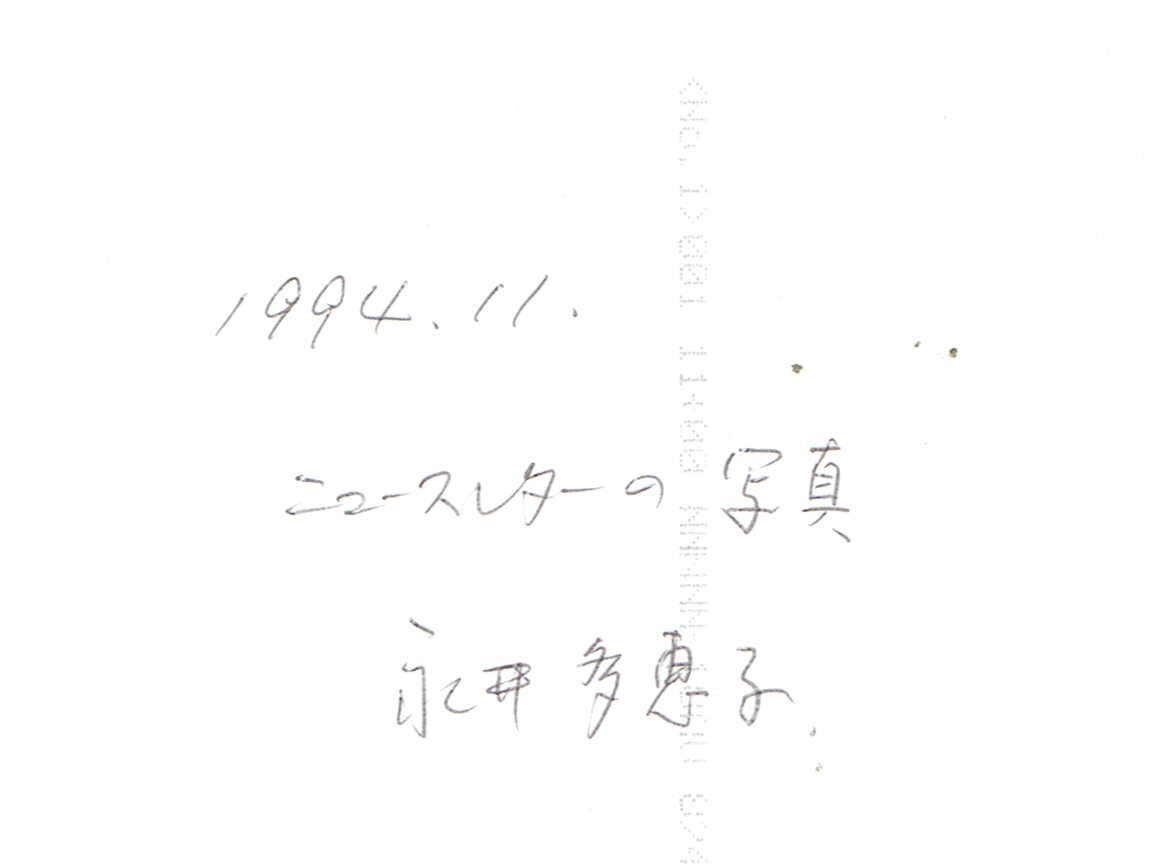 1994.11.
ニュースレターの写真
永井多恵子